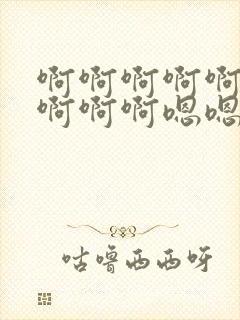 啊啊啊啊啊
啊啊啊嗯嗯
咕噜西西呀